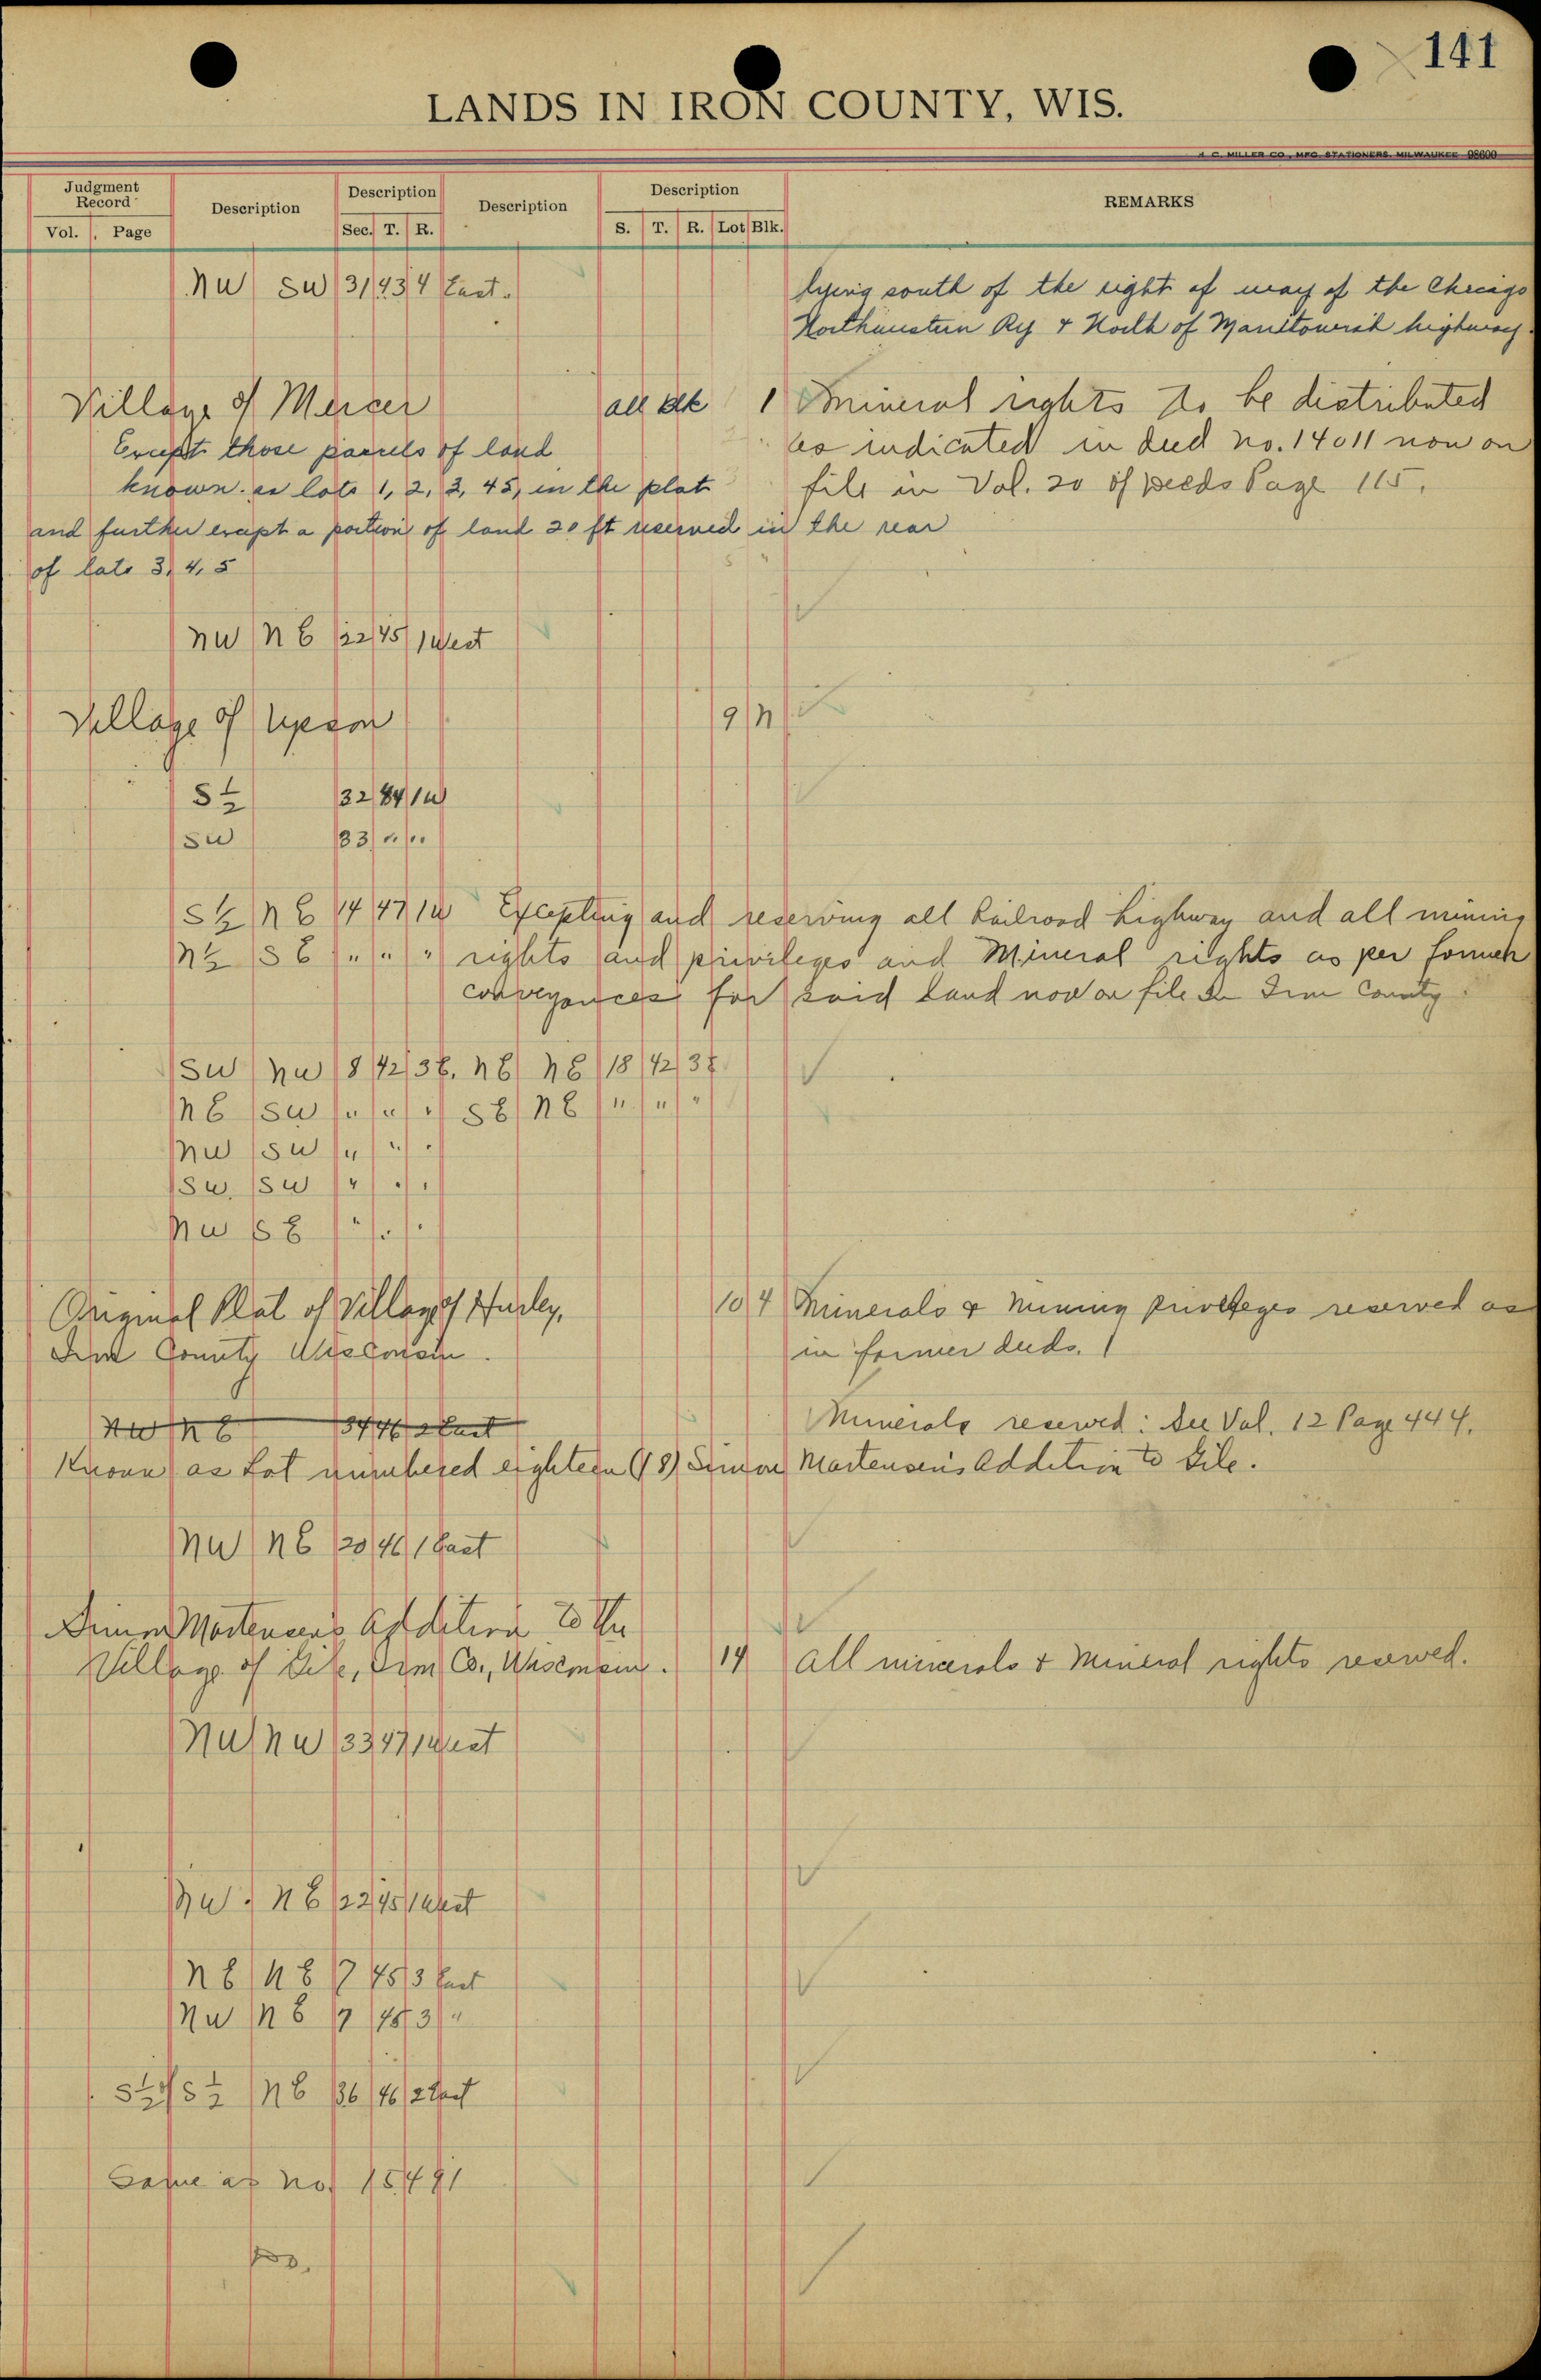 141
LANDS IN IRON COUNTY, WIS.
H. C. MILLER CO., MFG. STATIONERS, MILWAUKEE 98600
Judgment Record Description Description Description Description REMARKS
Vol. Page Sec. T. R. S. T. R. Lot Blk.
NW SW 31 43 4 East. lying south of the right of way of the Chicago
Northwestern Ry & North of Manitowish highway.
Village of Mercer all Blk 1 Mineral rights to be distributed
Except those parcels of land as indicated in deed no. 14011 now on
known as lots 1, 2, 3, 4 5, in the plat file in Vol. 20 of Deeds Page 115.
and further except a portion of land 20 ft reserved in the rear
of lots 3, 4, 5
NW NE 22 45 1 West
Village of Upson 9 N
S½ 32 44 1W
SW 33 " "
S½ NE 14 47 1W Excepting and reserving all Railroad highway and all mining
N½ SE " " " rights and privileges and Mineral rights as per former
conveyances for said land now on file in Iron County.
SW NW 18 42 3E. NE NE 18 42 3E
NE SW " " " SE NE " " "
NW SW " " "
SW. SW " " "
NW SE " " "
Original Plat of Village of Hurley, 10 4 Minerals & Mining privileges reserved as
Iron County Wisconsin. in former deeds.
NW NE 34 46 2 East Minerals reserved: See Vol. 12 Page 444.
Known as Lot numbered eighteen (18) Simon Martensen's Addition to Gile.
NW NE 20 46 1 East
Simon Martensen's Addition to the
Village of Gile, Iron Co., Wisconsin. 14 All minerals & Mineral rights reserved.
NW NW 33 47 1 West
NW NE 22 45 1 West
NE NE 7 45 3 East
NW NE 7 45 3 "
S½ of S½ NE 36 46 2 East
Same as No. 15491